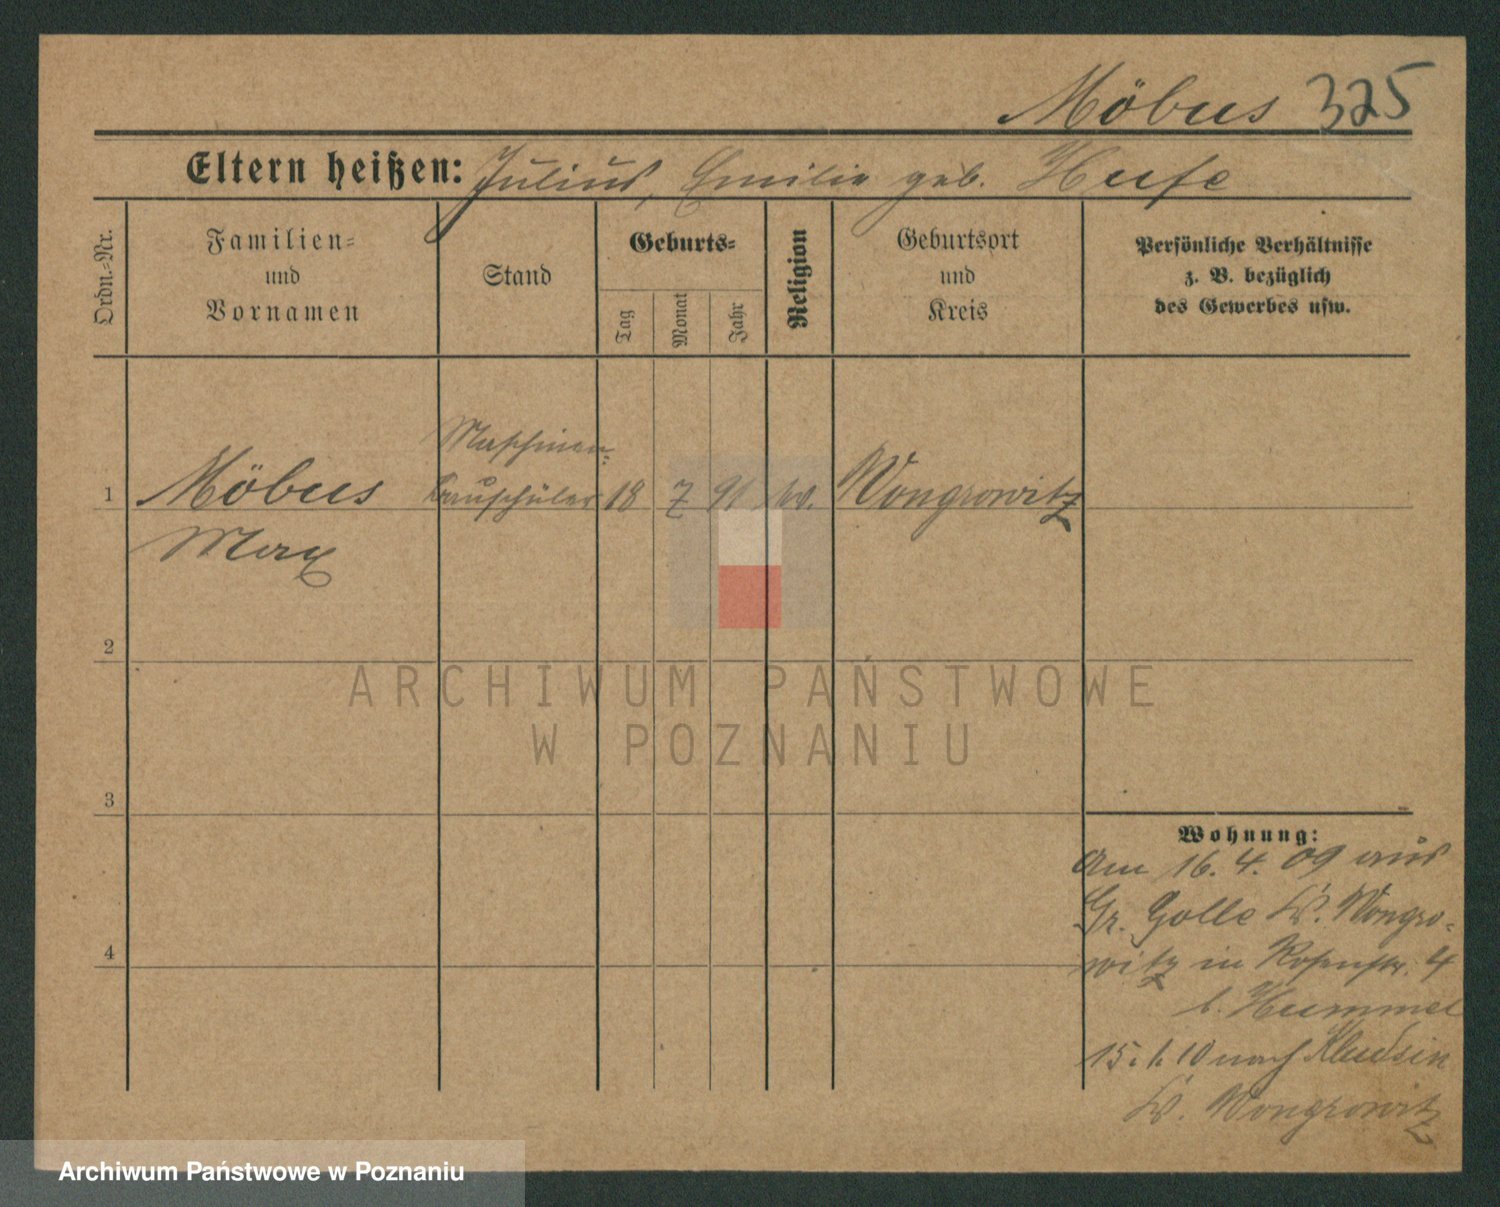 Möbus 325
Eltern heißen: Julius, Emilie geb. Hufe
Ordn.=Nr.
Familien=
und
Vornamen
Stand
Geburts=
Tag
Monat
Jahr
Religion
Geburtsort
und
Kreis
Persönliche Verhältnisse
z. B. bezüglich
des Gewerbes usw.
Maschinen=
1 Möbus bauschüler 18 7 91 ev. Wongrowitz
Max
2
ARCHIWUM PAŃSTWOWE
W POZNANIU
3
Wohnung:
Am 16. 4. 09 aus
Gr. Golle Kr. Wongro=
4
witz in Rosenstr. 4
b. Hummel
15. 1. 10 nach
Kr. Wongrowitz
Archiwum Państwowe w Poznaniu